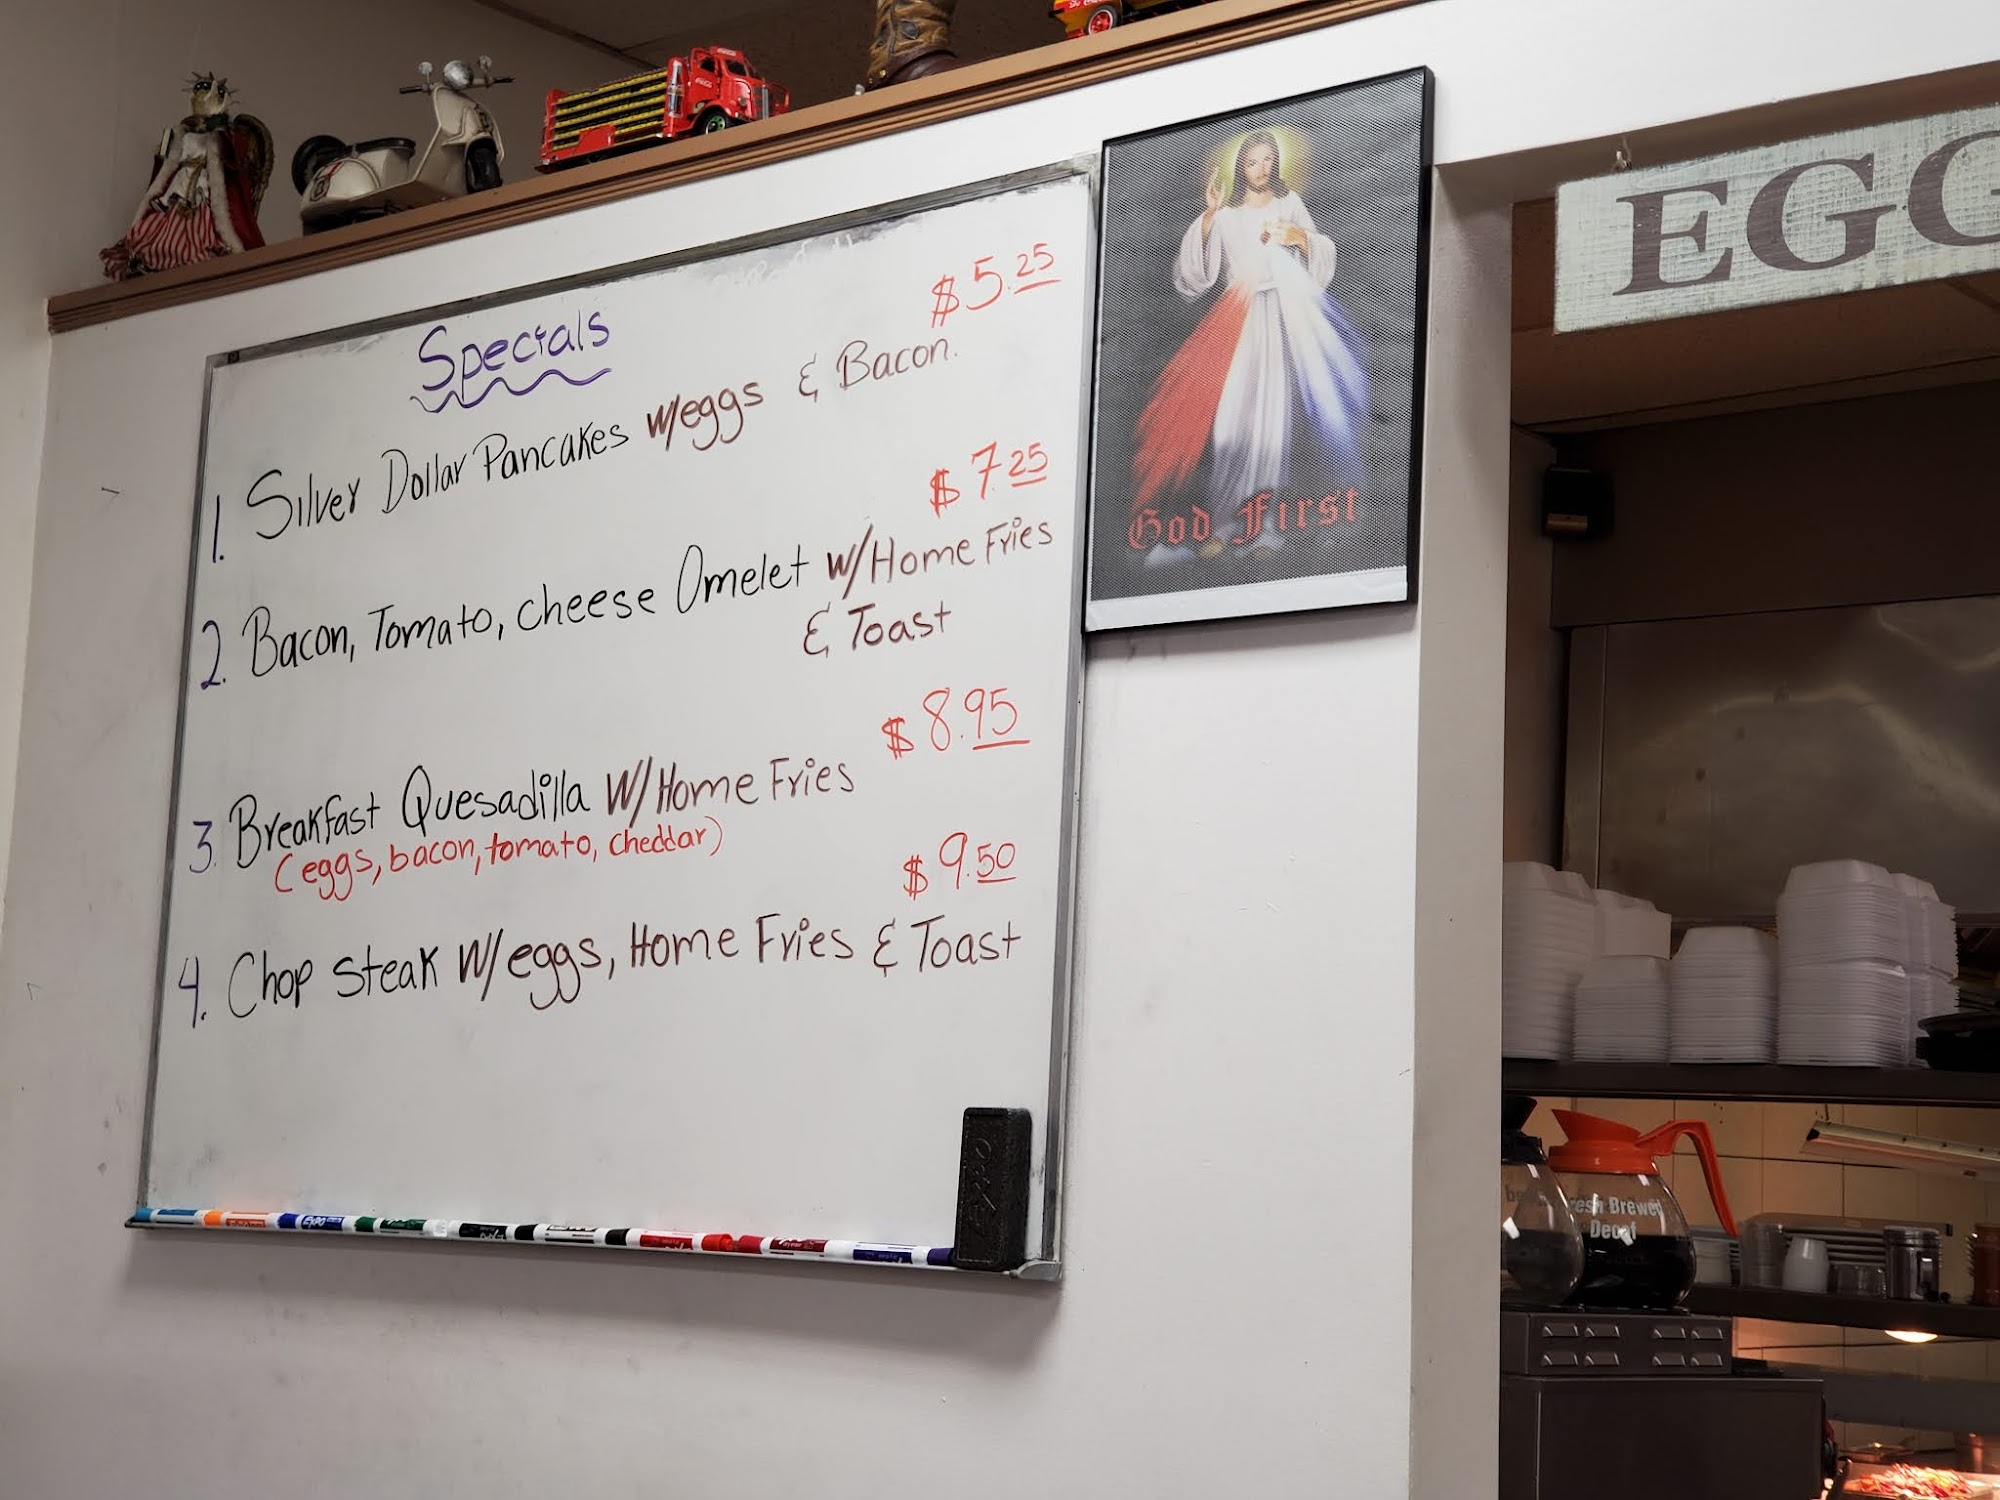 Specials
$5.25
1. Silver Dollar Pancakes w/eggs & Bacon.
$7.25
2. Bacon, Tomato, cheese Omelet w/Home Fries
& Toast
$8.95
3. Breakfast Quesadilla W/Home Fries
(eggs, bacon, tomato, cheddar)
$9.50
4. Chop steak W/eggs, Home Fries & Toast
God First
EGG
Expo
Fresh Brewed
Decaf